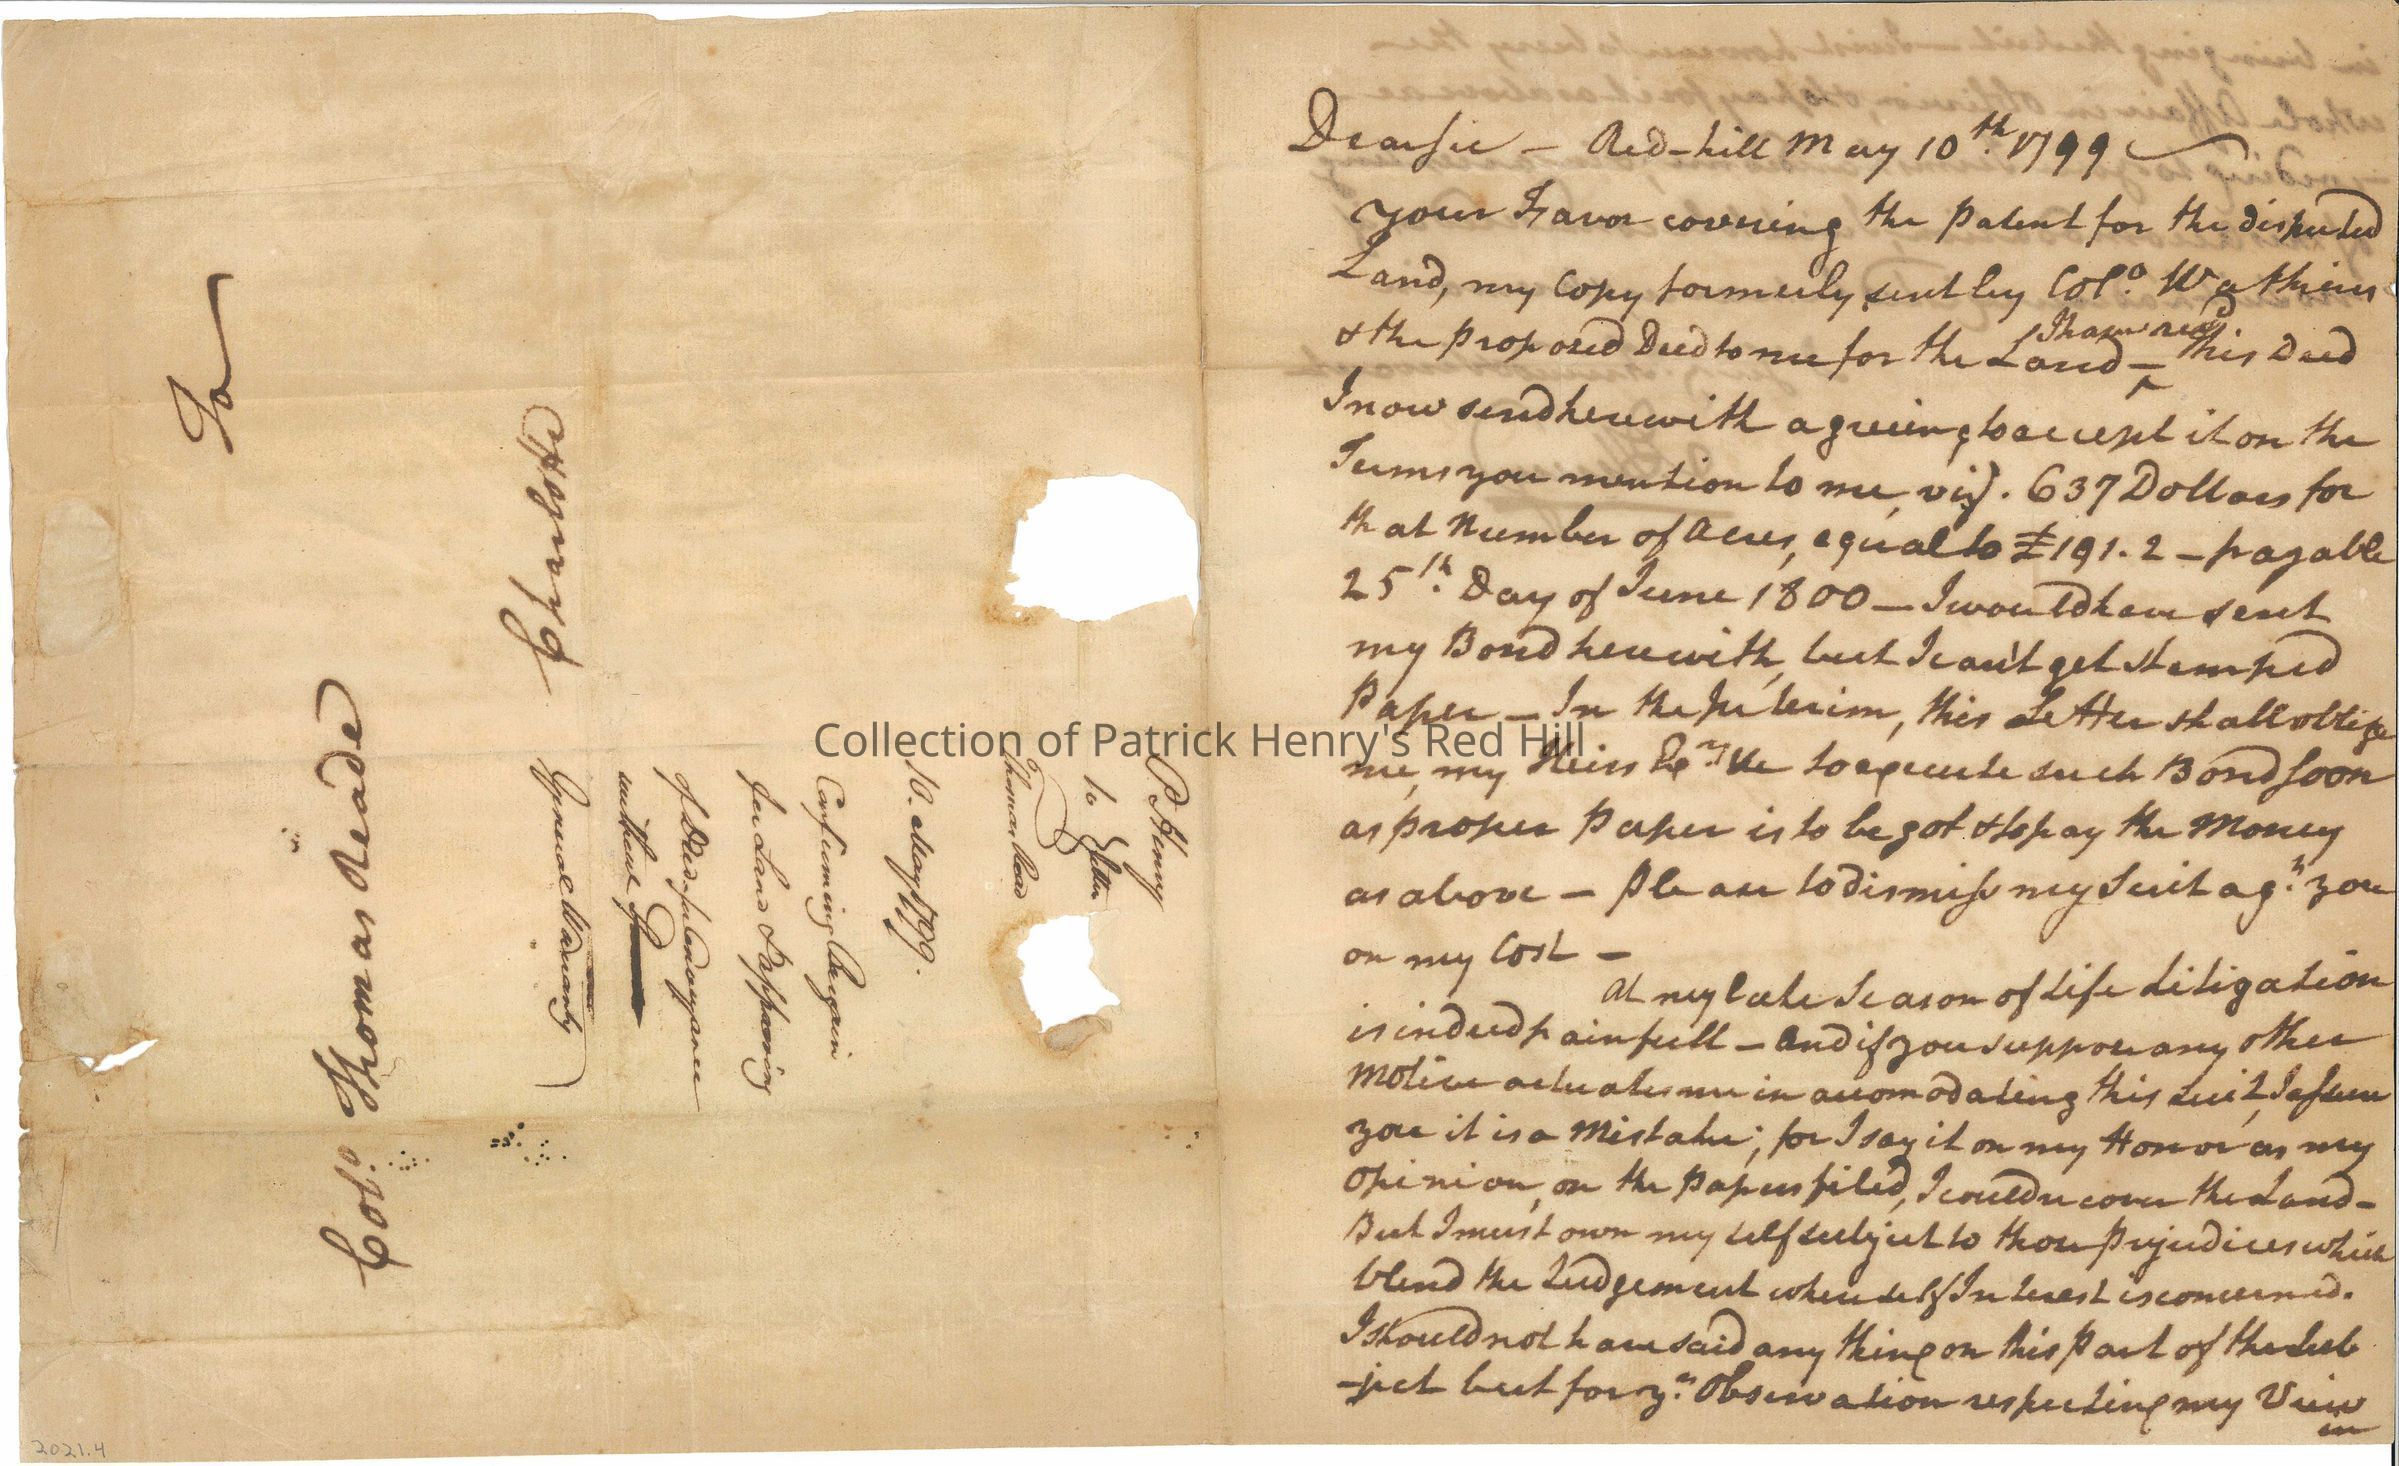 To
Colo. Thomas Reade
P Henry
to Letter
Thomas Read
10. May 1799.
Confirming Bargain
for Land & approving
of Deed for Conveyance
without
General Warranty
2021.4
Collection of Patrick Henry's Red Hill
Dear sir — Red-hill May 10th. 1799
your Favor covering the patent for the disputed
Land, my Copy formerly sent by Colo. Watkins
& the proposed Deed to me for the Land — I have recd. this Deed
I now send herewith agreeing to accept it on the
Terms you mention to me, viz. 637 Dollars for
that Number of Acres, equal to £191.2 — payable
25th. Day of June 1800 — I would have sent
my Bond herewith, but I can't get stamped
Paper — In the Interim, this Letter shall oblige
me, my Heirs &c to execute such Bond soon
as proper Paper is to be got & to pay the Money
as above — Please to dismiss my Suit agt. you
on my Cost —
At my late Season of Life Litigation
is indeed painfull — And if you suppose any other
Motive actuates me in accomodating this Suit, I assure
you it is a Mistake; for I say it on my Honor as my
opinion, on the papers filed, I could recover the Land —
But I must own my self subject to those prejudices which
blend the Judgement when self Interest is concerned.
I should not have said any thing on this Part of the Sub
-ject but for yr. Observation respecting my View
in